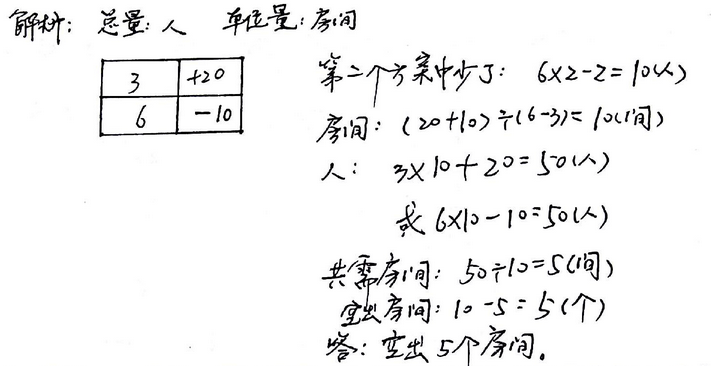 解析: 总量: 人 单位量: 房间
3 +20
6 -10
第二个方案中少了: 6×2-2=10(人)
房间: (20+10)÷(6-3)=10(间)
人: 3×10+20=50(人)
或 6×10-10=50(人)
共需房间: 50÷10=5(间)
空出房间: 10-5=5(个)
答: 空出5个房间.